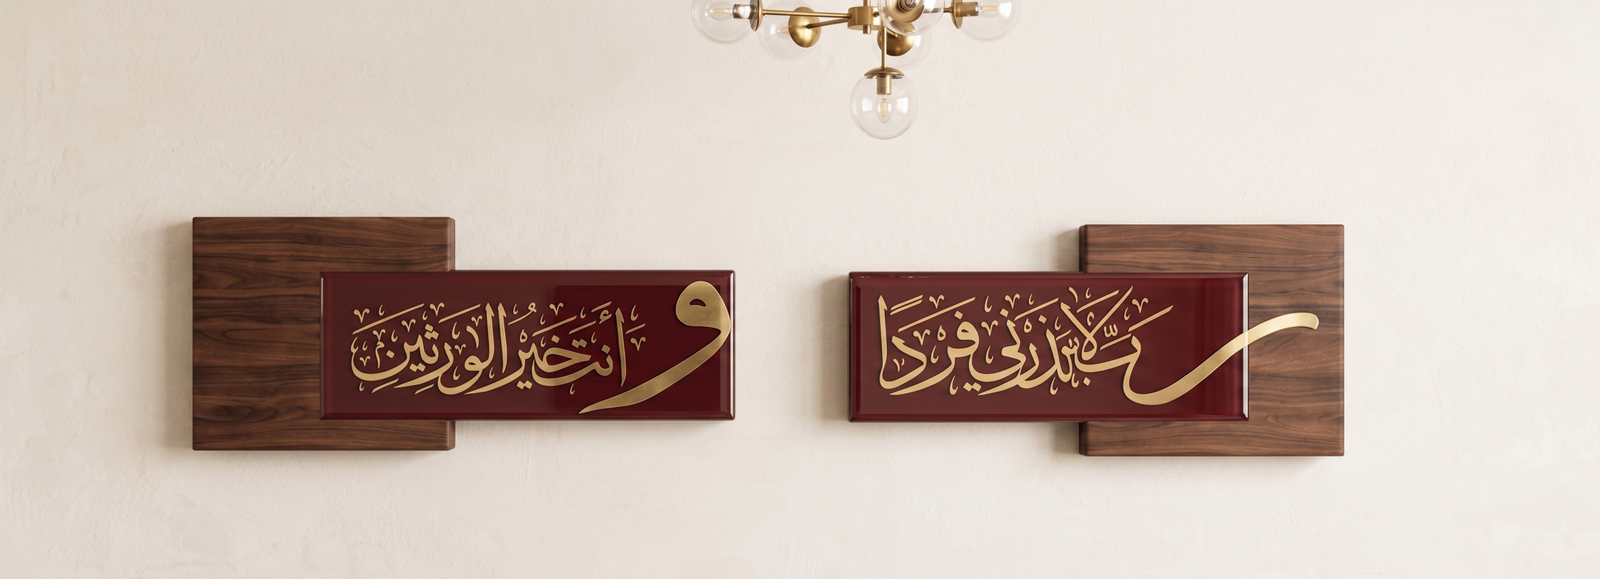 ربّ لا تذرني فردًا
وأنت خيرُ الورثين